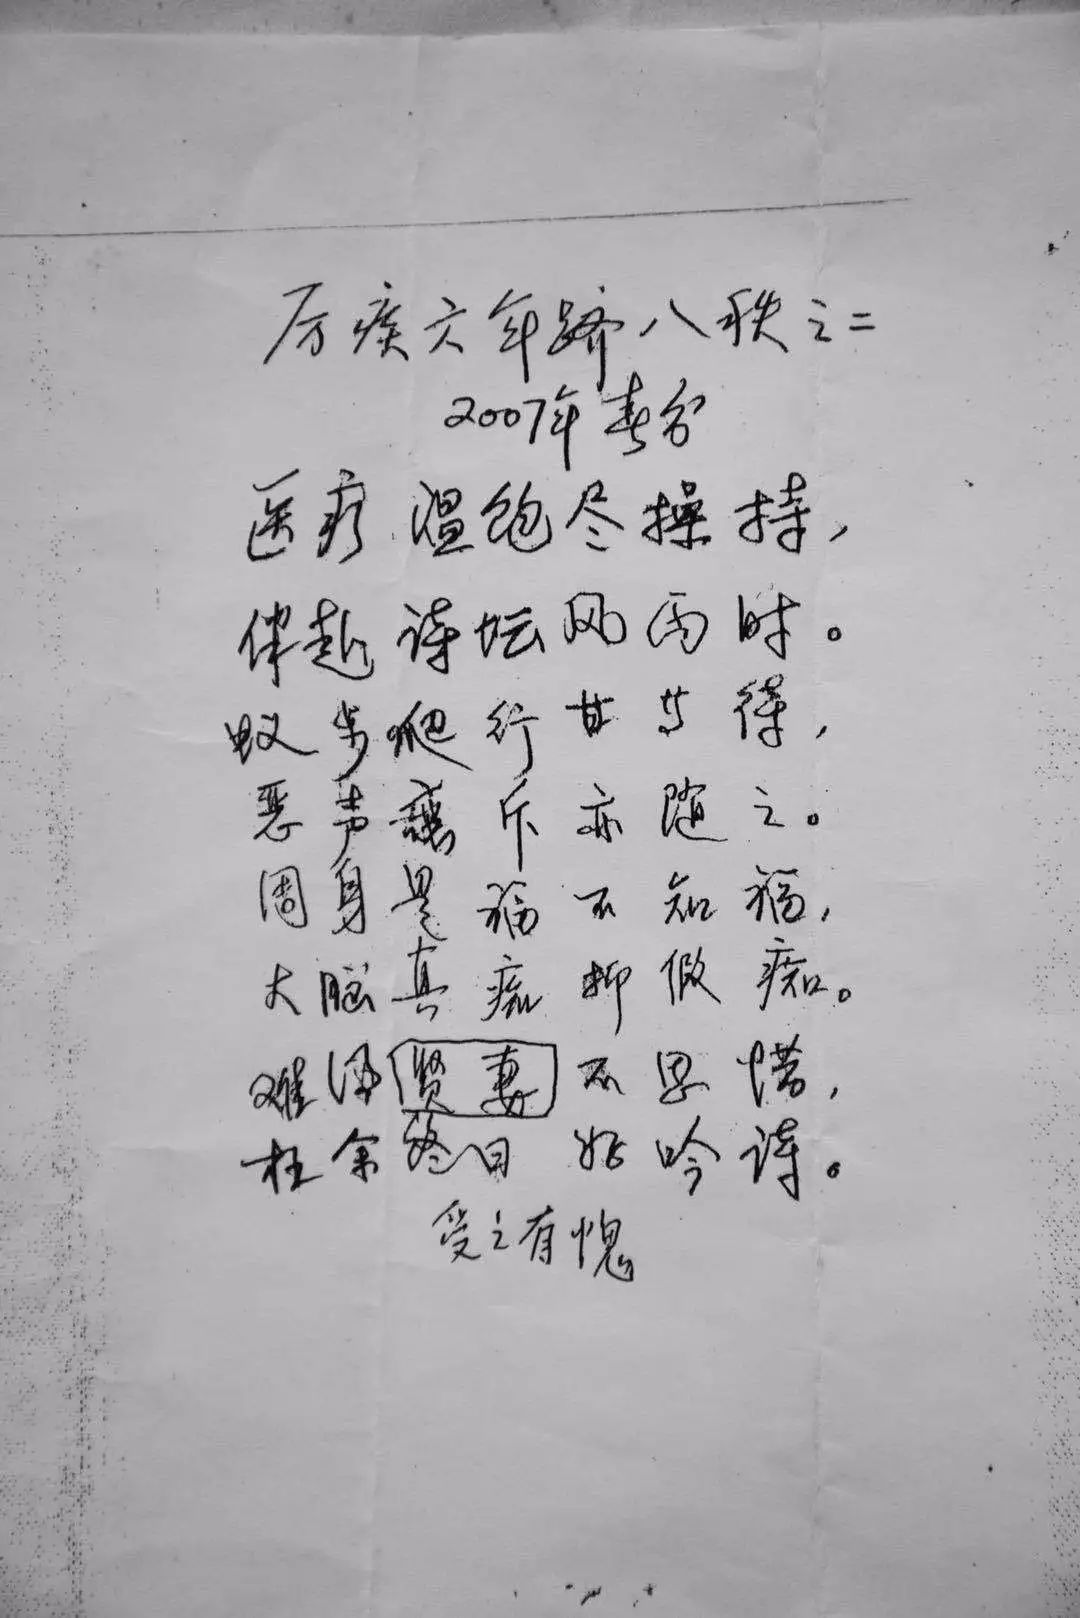 历疾六年跻八秩之二
2007年春分
医疗温饱尽操持，
伴赴诗坛风雨时。
蚁步爬行甘苦待，
恶声讓斥亦随之。
周身是福不知福，
大脑真痴抑假痴。
难得贤妻不思惜，
枉余终日好吟诗。
受之有愧